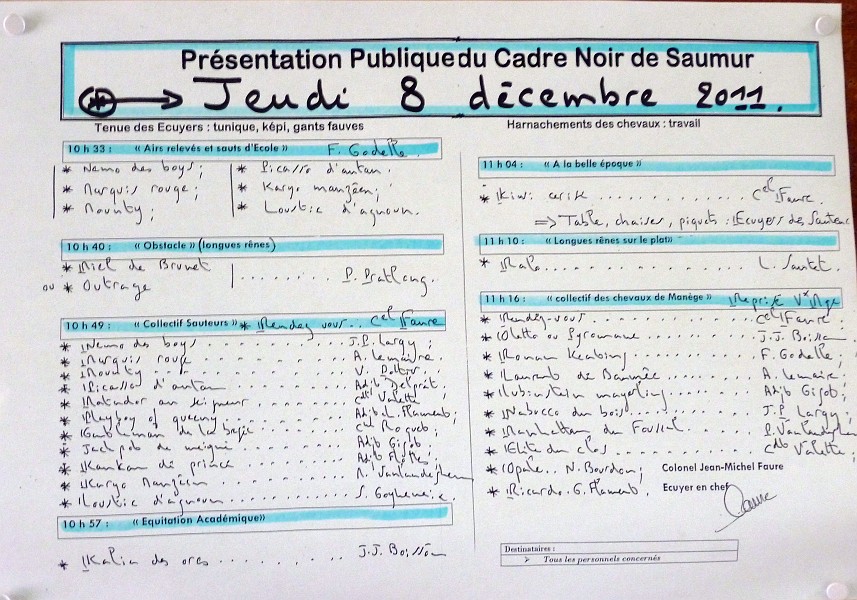 Présentation Publique du Cadre Noir de Saumur
Jeudi 8 décembre 2011.
Tenue des Ecuyers : tunique, képi, gants fauves
Harnachements des chevaux : travail
10 h 33 : « Airs relevés et sauts d'Ecole » F. Godelle.
* Nemo des boys ;
* Marquis rouge ;
* Mounty ;
* Picasso d'antan.
* Karyo manzéen ;
* Loustic d'agnoun.
10 h 40 : « Obstacle » (longues rênes)
* Miel de Brunet
ou * Outrage
P. Pratlong.
10 h 49 : « Collectif Sauteurs » * Rendez vous.. Cel Faure
* Nemo des boys J.P. Largy ;
* Marquis rouge A. Lemaire.
* Mounty V.
* Picasso d'antan Adjt Delprat.
* Matador Cdt Valette
* Playboy of queeny Adjt L. Flament ;
* Gentleman de la
* Jack pob de Adjt Gijob
* Kankan de prince Adjt
* Karyo Manzéen Vanlandeghem
* Loustic d'agnoun S.
10 h 57 : « Equitation Académique»
* Kalin des ores J.J. Boisson
11 h 04 : « A la belle époque »
* Kiwi Cel Faure.
=> Table, chaises, piquets : Ecuyers des Sauteurs
11 h 10 : « Longues rênes sur le plat»
* L. Sautet.
11 h 16 : « collectif des chevaux de Manège » Reprise
* Rendez-vous Cel Faure ;
* ou Pyromane J.J. Boisson
* Roman F. Godelle ;
* Laurent de A. Lemaire ;
* Lubinstein Adjt Gijob ;
* Nabucco du bois J.P. Largy ;
* Manhattan du P. Vanlandeghem
* Elite du clos Cdt Valette ;
* Opale.. N. Bourdon ;
* Ricardo. G. Flament.
Colonel Jean-Michel Faure
Ecuyer en chef
Faure
Destinataires :
➢ Tous les personnels concernés